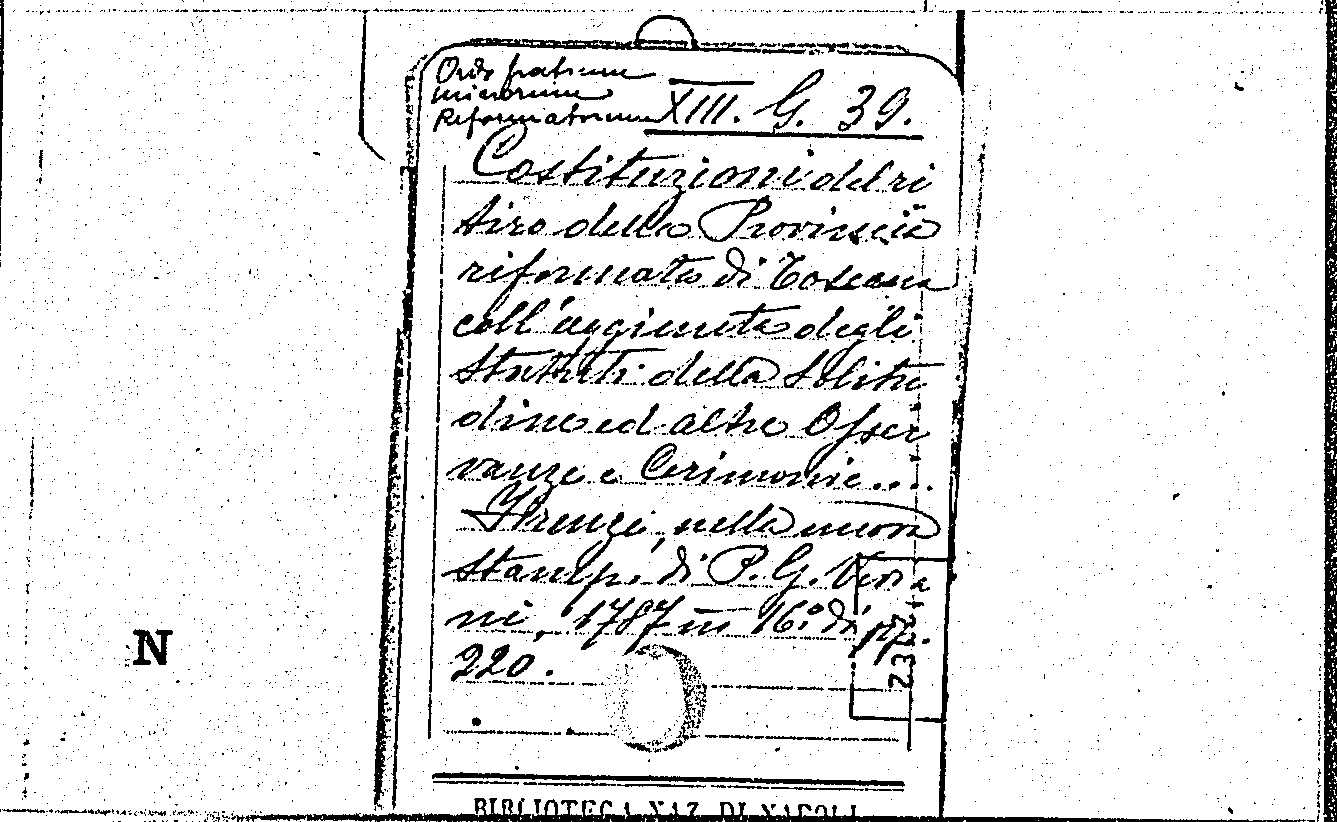 Ordo fratrum
minorum
Reformatorum XIII. G. 39.
Costituzioni del ri
tiro della Provincia
riformata di Toscana
coll'aggiunta degli
Statuti della Solitu
dine ed altre Osser
vanze e Cerimonie....
Firenze, nella nuova
stamp. di P. G. Vivia
ni, 1787 in 16.° di pp.
220.
N
BIBLIOTECA NAZ. DI NAPOLI